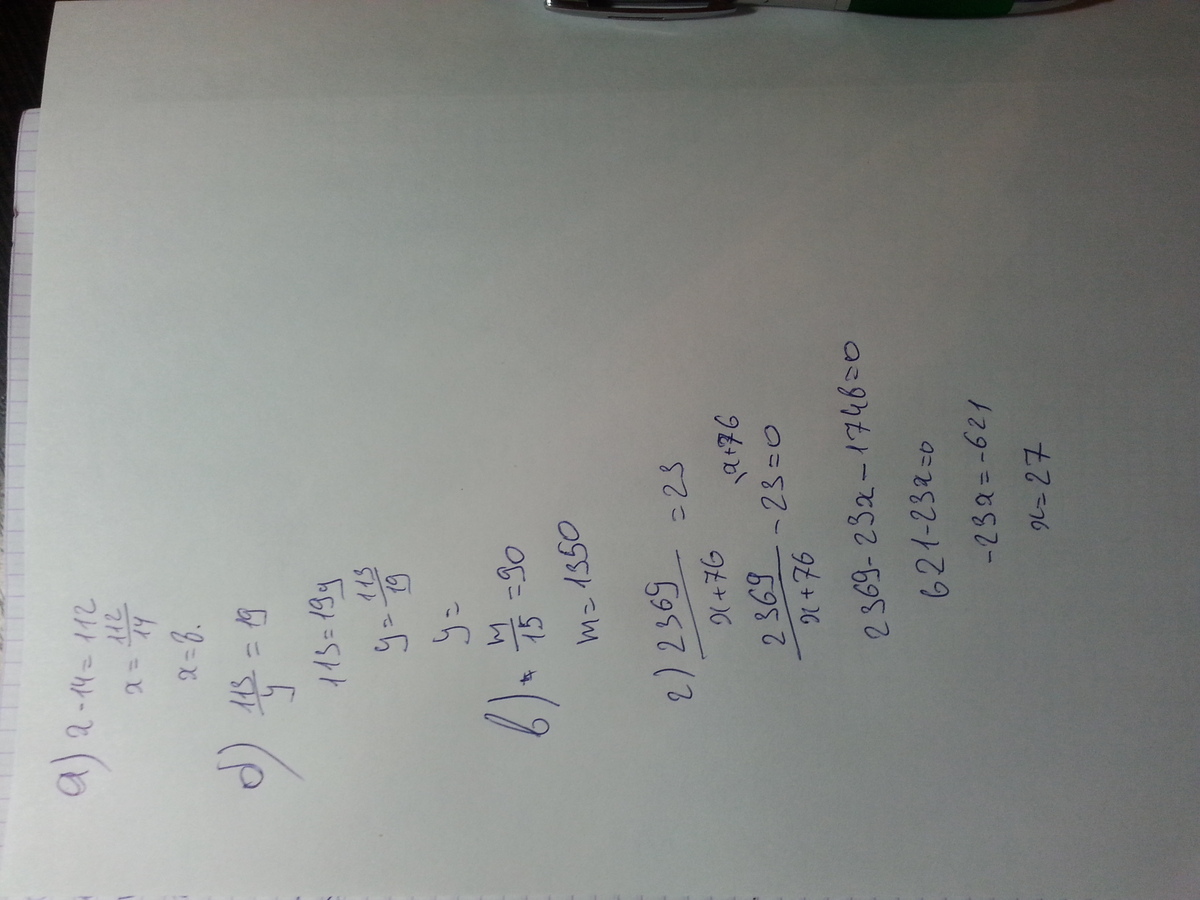 а) x · 14 = 112
x = 112/14
x = 8.
б) 113/y = 19
113 = 19y
y = 113/19
y =
в) m/15 = 90
m = 1350
г) 2369/x+76 = 23
2369/x+76 - 23 = 0 \x+76
2369 - 23x - 1748 = 0
621 - 23x = 0
-23x = -621
x = 27